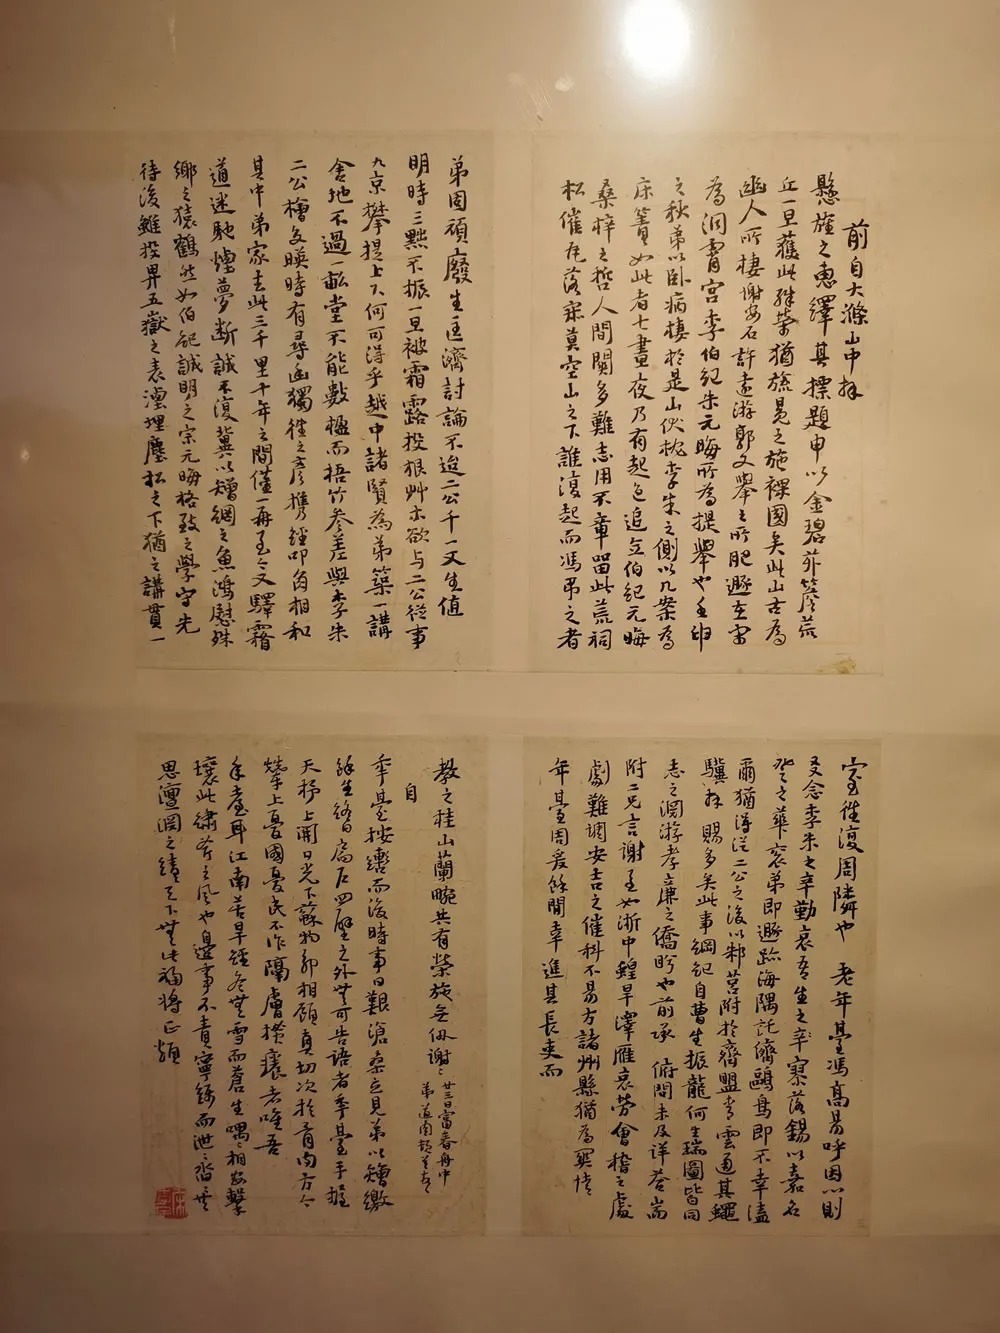 前自大滌山中拜
懸旌之惠繹其標題申以金碧菲簷荒
丘一旦獲此殊榮猶旒冕之施裸國矣此山古為
幽人所棲謝安石許遠游郭文舉之所肥遯至宋
為洞霄宮李伯紀朱元晦所為提舉也壬申
之秋弟以臥病棲於是山伏枕李朱之側以几案為
床簀如此者七晝夜乃有起色追念伯紀元晦
桑梓之哲人間關多難志用不章留此荒祠
松催瓦落寂莫空山之下誰復起而馮弔之者
弟固頑廢生匡濟討論不逮二公千一又生值
明時三黜不振一旦被霜露投狼艸亦欲与二公從事
九京攀提上下何可得乎越中諸賢為弟築一講
舍地不過一畝堂不能數楹而梧竹參差與李朱
二公檜多暎時有尋幽獨往之彥攜經叩角相和
其中弟家去此三千里十年之間僅一再至今又驛霜
道迷馳煙夢断誠不復冀以矰網之魚鴻慰殊
鄉之猿鶴然如伯紀誠明之宗元晦格致之學守先
待後雖投畀五嶽之表湮埋塵松之下猶之講貫一
室往復周隣也 老年臺馮高易呼因心則
又念李朱之辛勤哀吾生之辛寥落錫以嘉名
登之華袞弟即遯跡海隅託儕鷗鳥即不幸溘
爾猶得從二公之後以邾莒附於齊盟青雲通其蠅
驥拜 賜多矣此事綱紀自曹生振龍何生瑞圖皆同
志之淵游孝廉之僑盻也前承 俯問未及詳荅耑
附二兄言謝至如浙中蝗旱澤雁哀勞會稽之處
劇難堈安吉之催科不易方諸州縣猶為異情
年臺周爰餘間幸進其長吏而
教之桂山蘭畹共有榮施無毋謝謝 廿三日富春舟中
弟道周頓首
自
年臺按轡而後時事日艱滄桑立見弟以矰繳
餘生絡日局户四壁之外無可告語者年臺手握
天杼上開日光下蘇物卯相顧真切次於肯南方今
犖上憂國憂民不作隔膚撓癢者唯吾
年臺耳江南苦旱經冬無雪而蒼生喁喁相安擊
壤此繡斧之風也邊事不責寧錦而泄泄沓
思澶淵之績天下無此福將正頼